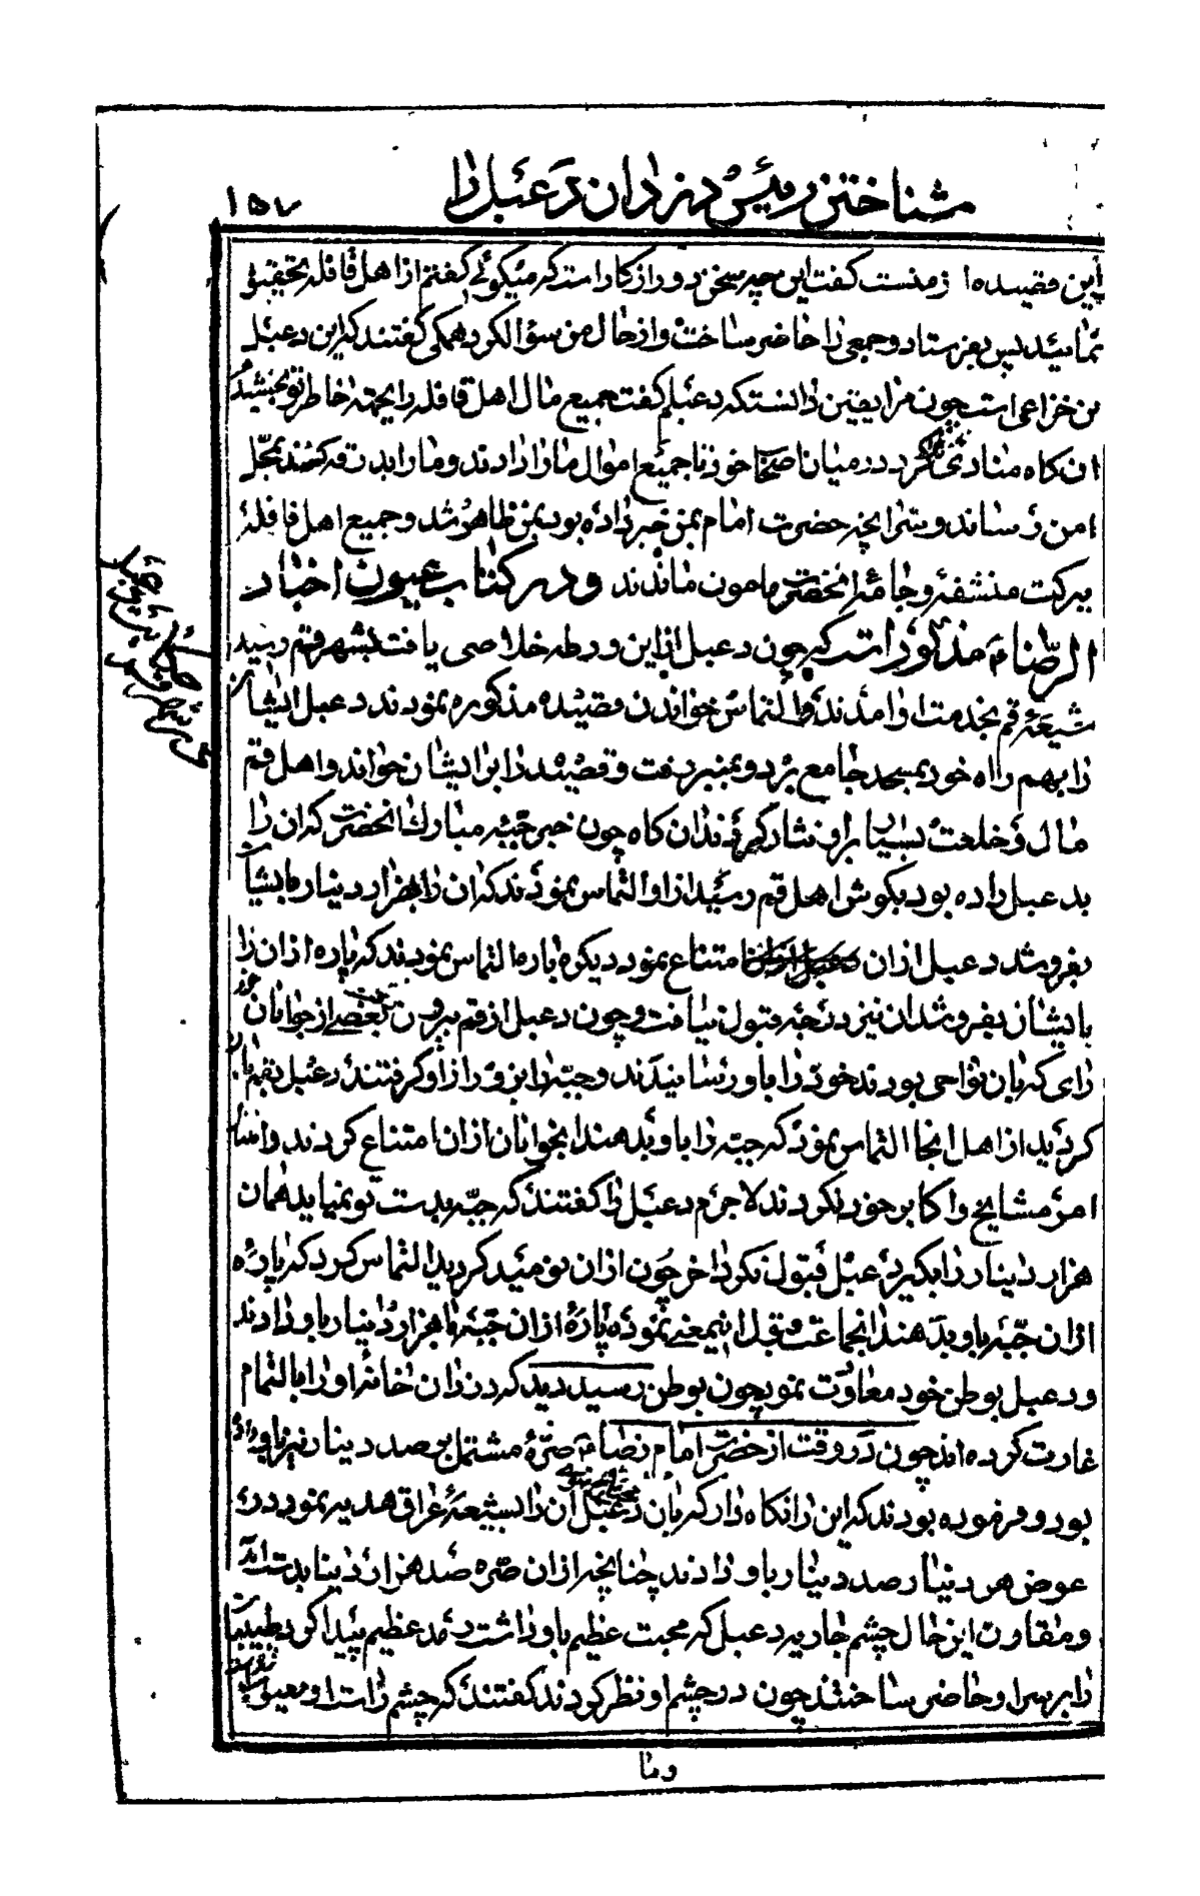 شناختن رئیس دزدان دعبل را ۱۵۷
این قصیده از منست گفت این چه سخن دور از کار است که میگوئی گفتم از اهل قافله تحقیق
نمائید پس بفرستاد و جمعی را حاضر ساخت و از حال من سؤال کرد همگی گفتند که این دعبل
بن خزاعی است چون مرا یقین دانست که دعبلم گفت جمیع مال اهل قافله را بجهة خاطر تو بخشیدم
ان کاه منادی کرد در میان اصحاب خود تا جمیع اموال ما را دادند و ما را بدرقه کشند بمحل
امن رساند و سر انچه حضرت امام بمن خبر داده بود بمن ظاهر شد و جمیع اهل قافله
ببرکت منشفه و جامهٔ انحضرت مامون ماندند و در کتاب عیون اخبار
الرضا مذکور است که چون دعبل از این ورطه خلاصی یافت بشهر قم رسید
شیعهٔ قم بخدمت او امدند و التماس خواندن قصیده مذکوره نمودند دعبل ایشان
را بهمراه خود بمسجد جامع برد و بمنبر رفت و قصیده را بر ایشان خواند و اهل قم
مال و خلعت بسیار بر او نثار کردند ان کاه چون خبر جبّهٔ مبارک انحضرت که ان را
بدعبل داده بود بگوش اهل قم رسید از او التماس نمودند که ان را بهزار دینار بایشان
بفروشد دعبل از ان امتناع نمود دیگر باره التماس نمودند که پاره از ان را
بایشان بفروشد ان نیز درجهٔ قبول نیافت و چون دعبل از قم بیرون رفت بعضی از جوانان خود
رای که بان نواحی بودند خود را باو رسانیدند و جبّه را بزور از او گرفتند دعبل بقم باز
کردید از اهل انجا التماس نمود که جبّه را باو بدهند انجوانان از ان امتناع کردند و امتثال
امر مشایخ و اکابر خود نکردند لاجرم دعبل را گفتند که جبّه بدست تو نمیاید همان
هزار دینار را بگیر دعبل قبول نکرد اخر چون از ان نومید کردید التماس کرد که پارهٔ
از ان جبّه باو بدهند انجماعت قبول اینمعنی نموده پارهٔ از ان جبّه با هزار دینار باو دادند
و دعبل بوطن خود معاودت نمود چون بوطن رسید دید که دزدان خانه او را بالتمام
غارت کرده اند چون در وقت از حضرت امام رضا صرّهٔ مشتمل بر صد دینار نیز باو داده
بود و فرموده بودند که این را نگاه دار که بان دعبل ان را بشیعهٔ عراق هدیه نمود در
عوض هر دینار صد دینار باو دادند چنانچه از ان صرّه صد هزار دینا بدست امد
و مقارن این حال چشم جاریه دعبل که محبت عظیم باو داشت رمد عظیم پیدا کرد طبیبان
را بر سر او حاضر ساختند چون در چشم او نظر کردند گفتند که چشم راست او معیوب شده
وما